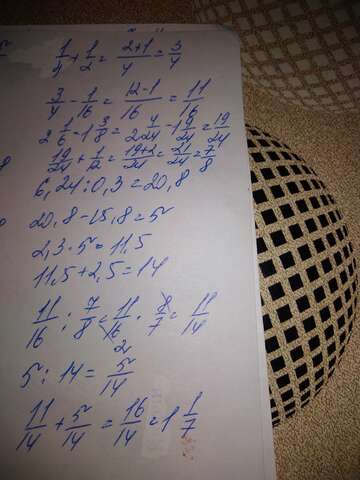 1/4 + 1/2 = 2+1/4 = 3/4
3/4 - 1/16 = 12-1/16 = 11/16
2 1/6 - 1 3/8 = 2 4/24 - 1 9/24 = 19/24
19/24 + 1/12 = 19+2/24 = 21/24 = 7/8
6,24 : 0,3 = 20,8
20,8 - 15,8 = 5
2,3 · 5 = 11,5
11,5 + 2,5 = 14
11/16 : 7/8 = 11/16 · 8/7 = 11/14
2
5 : 14 = 5/14
11/14 + 5/14 = 16/14 = 1 1/7